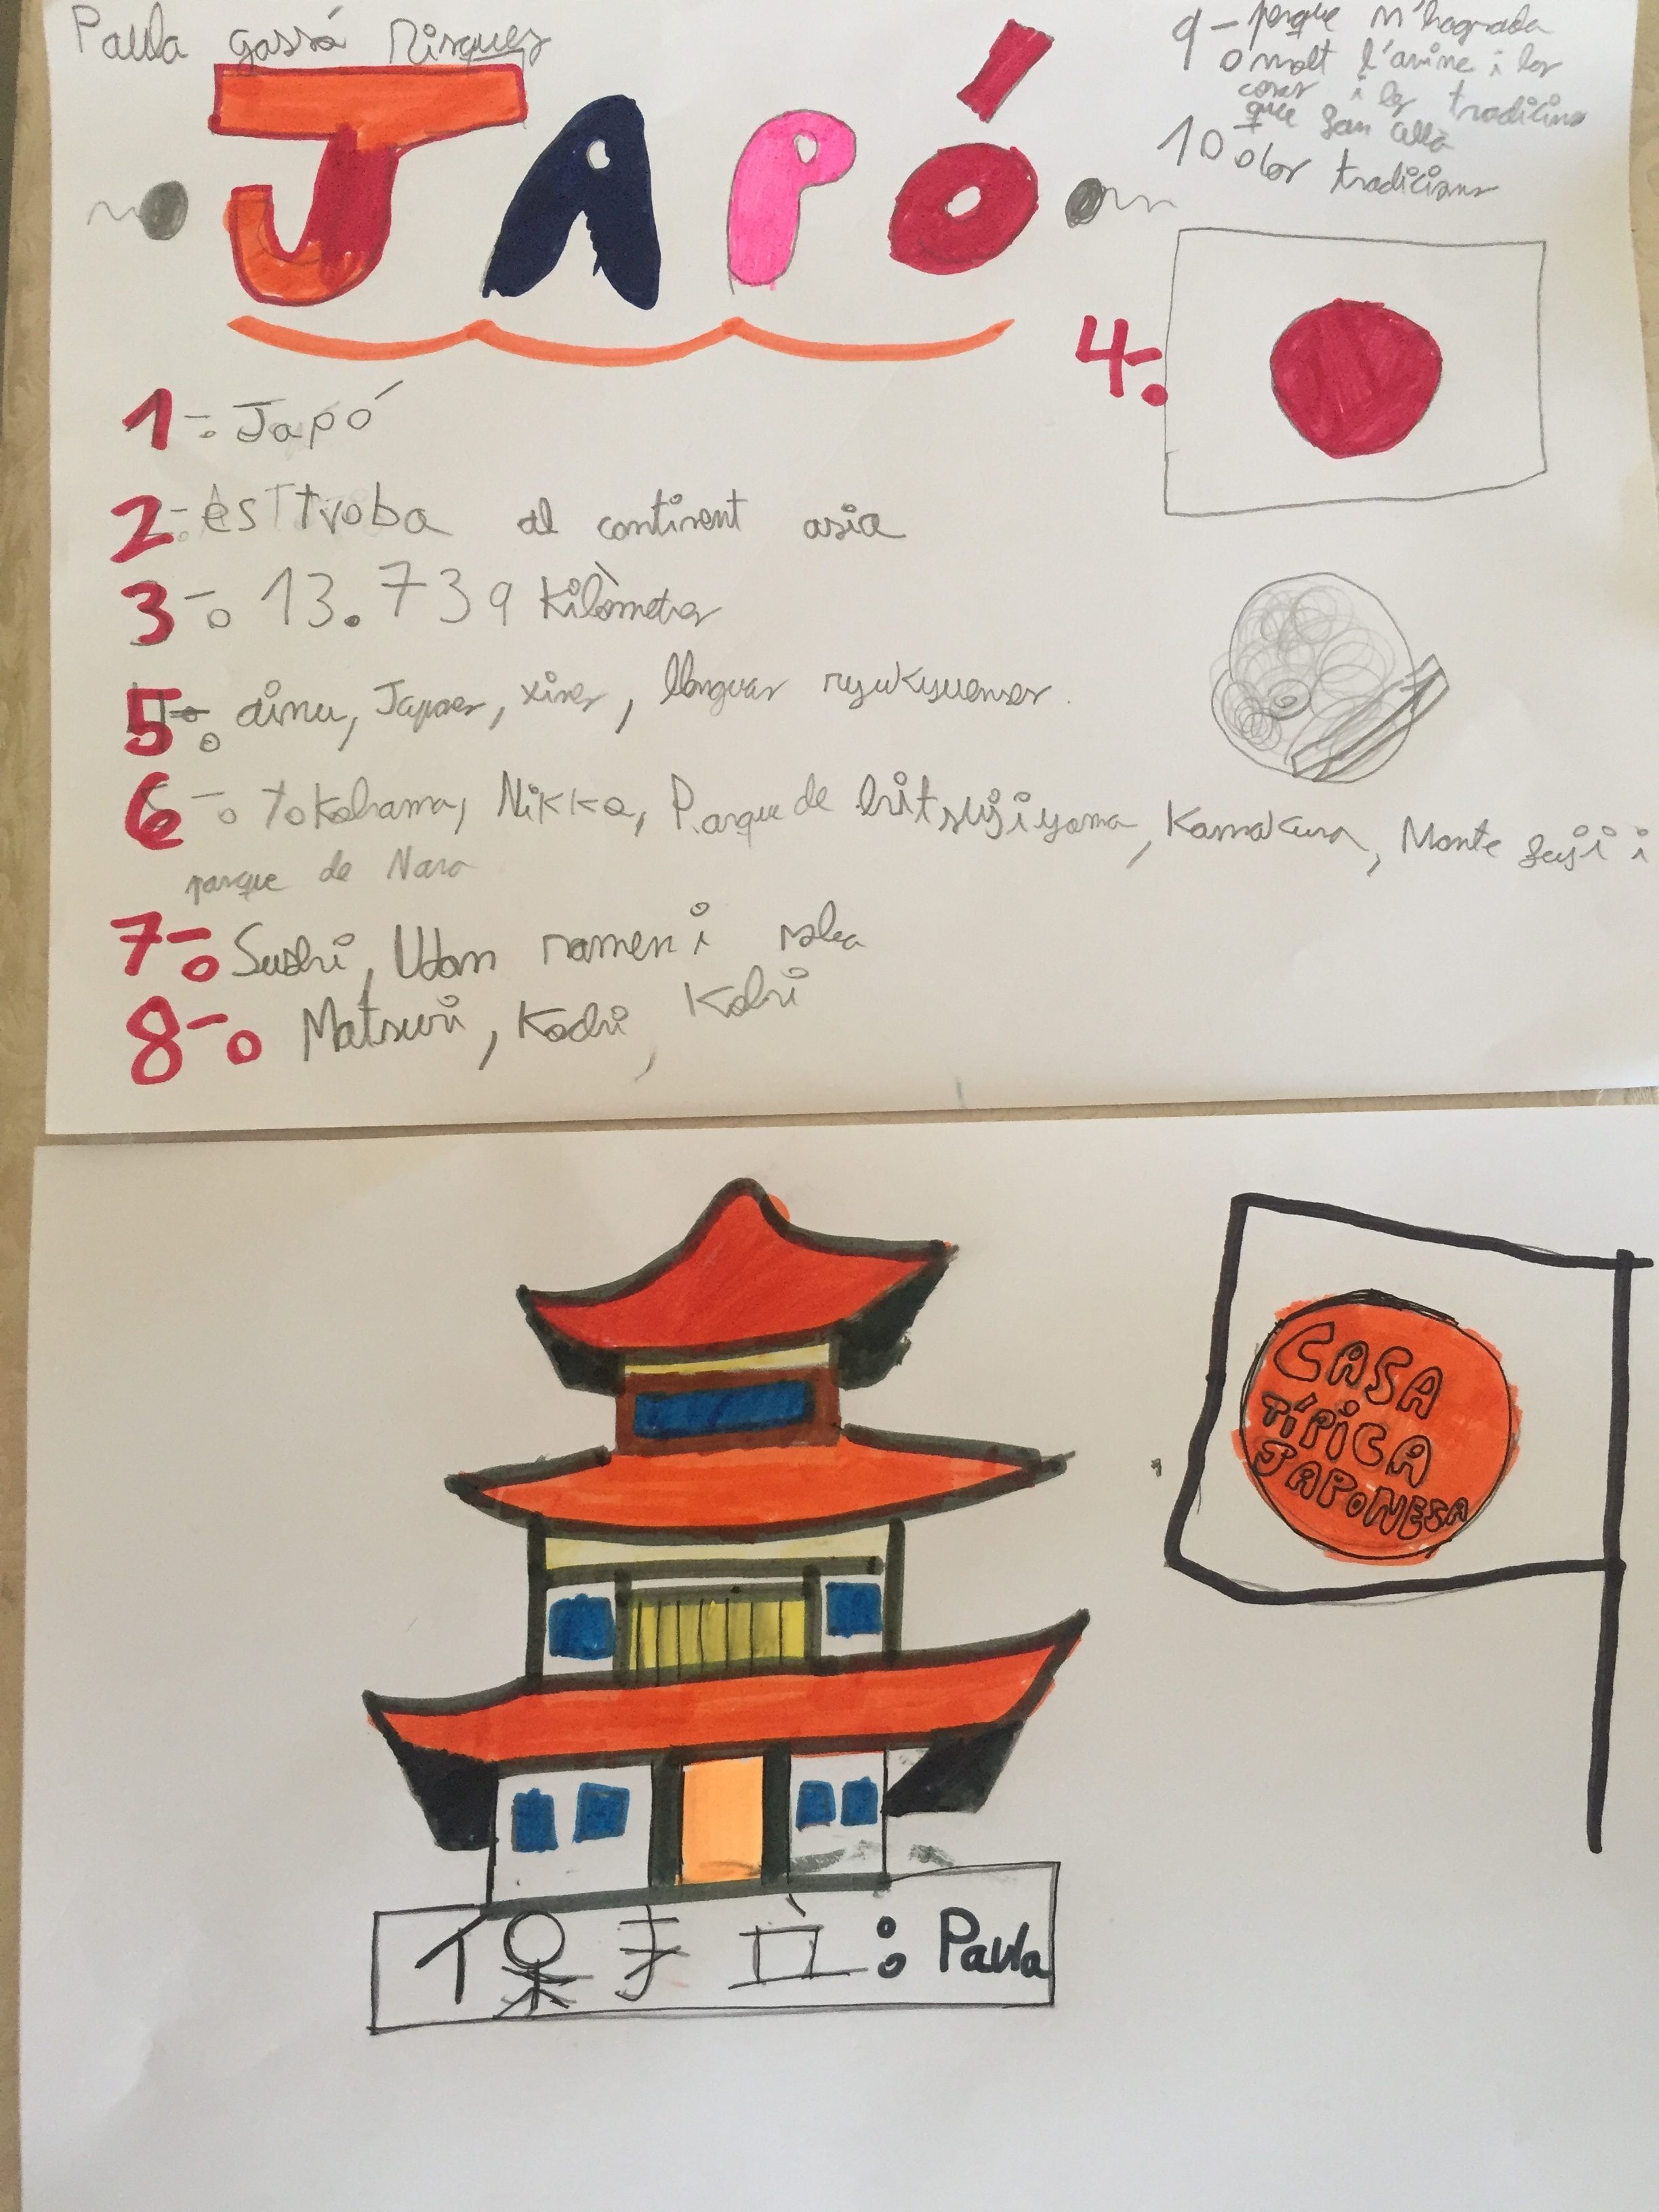 Paula gassó Risques
JAPÓ
1-: Japó
2-: es troba al continent asia
3-: 13.739 Kilòmetres
4-:
5-: ainu, Japones, xines, llengues ryukyuenses.
6-: Yokohama, Nikko, Parque de hitsujiyama, Kamakura, Monte fuji i
parque de Nara
7-: Sushi, Udon ramen i
8-: Matsuri, Kochi, Kobri
9-: perque m'hagrada
molt l'anime i les
coses i les tradicions
que fan allà
10: tradicions
CASA
TÍPICA
JAPONESA
保手立: Paula